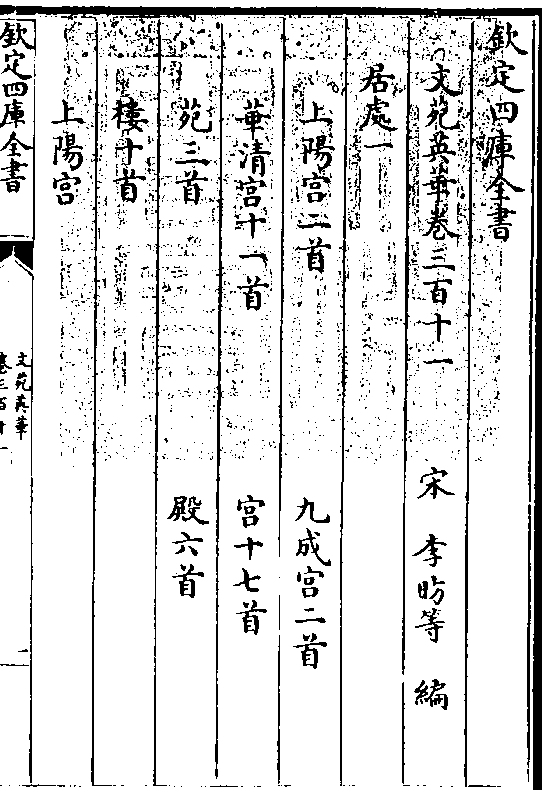 欽定四庫全書
文苑英華卷三百十一
宋 李昉等 編
居處一
上陽宫二首 九成宫二首
華清宫十一首 宫十七首
苑三首 殿六首
樓十首
上陽宫
欽定四庫全書
文苑英華
卷三百十一
一